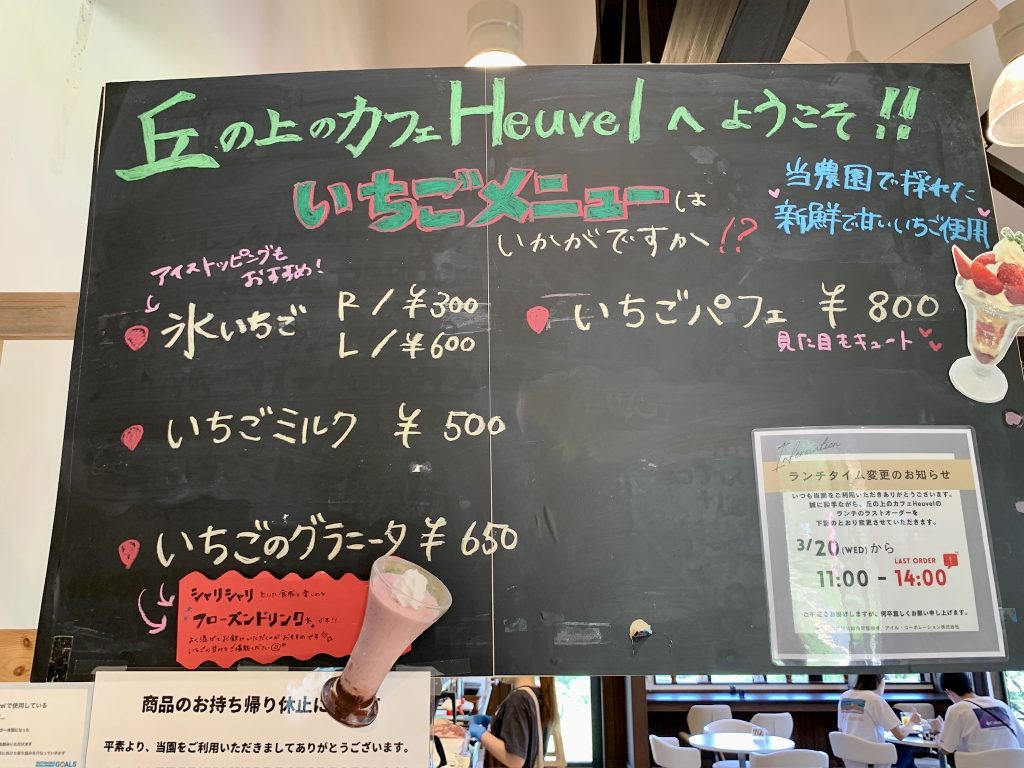 丘の上のカフェHeuvelへようこそ!!
いちごメニューは
いかがですか!?
当農園で採れた
新鮮で甘いいちご使用
アイストッピングも
おすすめ!
氷いちご
R/¥300
L/¥600
いちごミルク ¥500
いちごのグラニータ ¥650
シャリシャリとした食感を楽しめる
フローズンドリンク です!!
よく混ぜてお飲みいただくのがおすすめです
いちごの甘さをご堪能ください
いちごパフェ ¥800
見た目もキュート
Information
ランチタイム変更のお知らせ
いつも当園をご利用いただきありがとうございます。
誠に勝手ながら、丘の上のカフェHeuvelの
ランチのラストオーダーを
下記のとおり変更させていただきます。
3/20(WED)から
LAST ORDER
11:00 - 14:00
ご不便をお掛けしますが、何卒宜しくお願い申し上げます。
アイル・コーポレーション株式会社
商品のお持ち帰り休止に
平素より、当園をご利用いただきましてありがとうございます。
velで使用している
GOALS